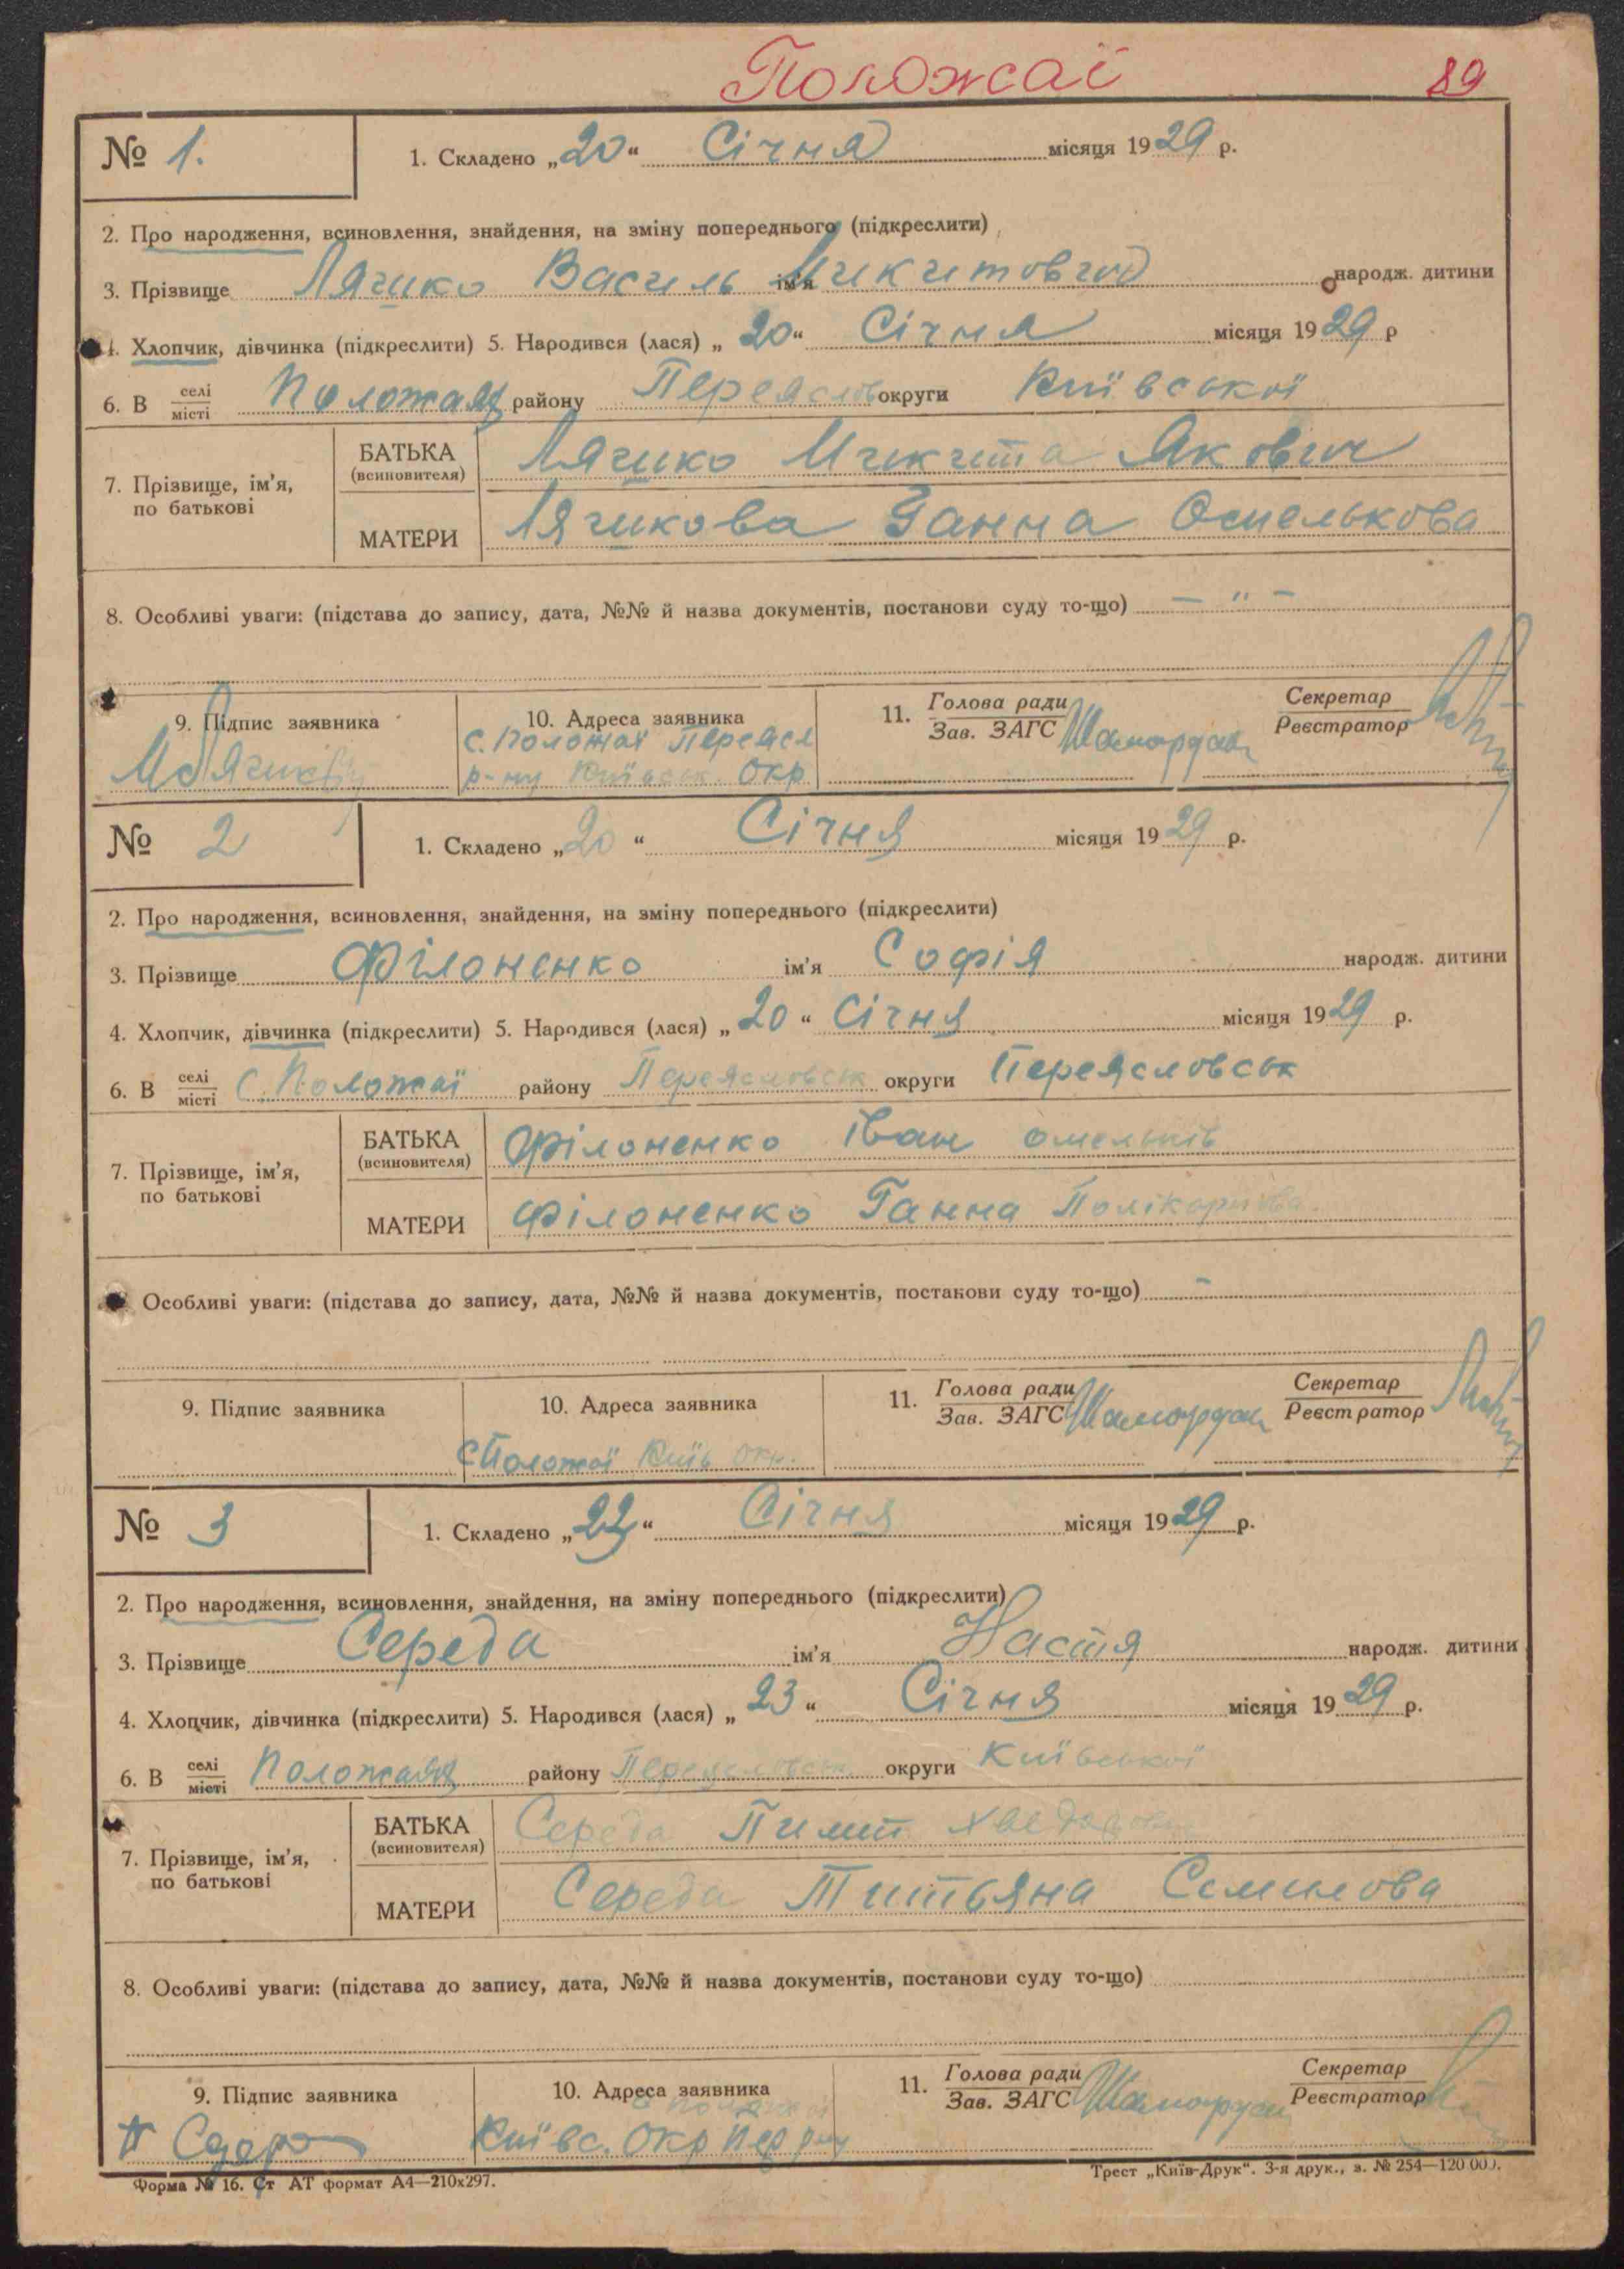 Положаї 89
№ 1. 1. Складено „20“ Січня місяця 1929 р.
2. Про народження, всиновлення, знайдення, на зміну попереднього (підкреслити)
3. Прізвище Лячико Василь ім'я народж. дитини
4. Хлопчик, дівчинка (підкреслити) 5. Народився (лася) „20“ Січня місяця 1929 р
6. В селі місті Положаях району Переяслов округи Київської
7. Прізвище, ім'я, по батькові БАТЬКА (всиновителя) Лячико Микита Якович
МАТЕРИ Лячикова Ганна Омелькова
8. Особливі уваги: (підстава до запису, дата, №№ й назва документів, постанови суду то-що) — " —
9. Підпис заявника 10. Адреса заявника 11. Голова ради Зав. ЗАГС Секретар Реєстратор
с. Положаї Переясл
р-ну Київськ. Окр
№ 2 1. Складено „20“ Січня місяця 1929 р.
2. Про народження, всиновлення, знайдення, на зміну попереднього (підкреслити)
3. Прізвище Філоненко ім'я Софія народж. дитини
4. Хлопчик, дівчинка (підкреслити) 5. Народився (лася) „20“ Січня місяця 1929 р.
6. В селі місті С. Положаї району Переясловськ округи Переясловськ
7. Прізвище, ім'я, по батькові БАТЬКА (всиновителя) Філоненко Іван Омельків
МАТЕРИ Філоненко Ганна Полікарпова
Особливі уваги: (підстава до запису, дата, №№ й назва документів, постанови суду то-що) -
9. Підпис заявника 10. Адреса заявника 11. Голова ради Зав. ЗАГС Секретар Реєстратор
С Положаї Київ Окр.
№ 3 1. Складено „22“ Січня місяця 1929 р.
2. Про народження, всиновлення, знайдення, на зміну попереднього (підкреслити)
3. Прізвище Середа ім'я Настя народж. дитини
4. Хлопчик, дівчинка (підкреслити) 5. Народився (лася) „23“ Січня місяця 1929 р.
6. В селі місті Положаях району Переясловськ округи Київської
7. Прізвище, ім'я, по батькові БАТЬКА (всиновителя) Середа Пимин
МАТЕРИ Середа Титьяна Семенова
8. Особливі уваги: (підстава до запису, дата, №№ й назва документів, постанови суду то-що)
9. Підпис заявника 10. Адреса заявника 11. Голова ради Зав. ЗАГС Секретар Реєстратор
Київс. Окр Пер р-ну
Форма № 16. Ст АТ формат А4—210х297. Трест „Київ-Друк“. 3-я друк., з. № 254—120 000.